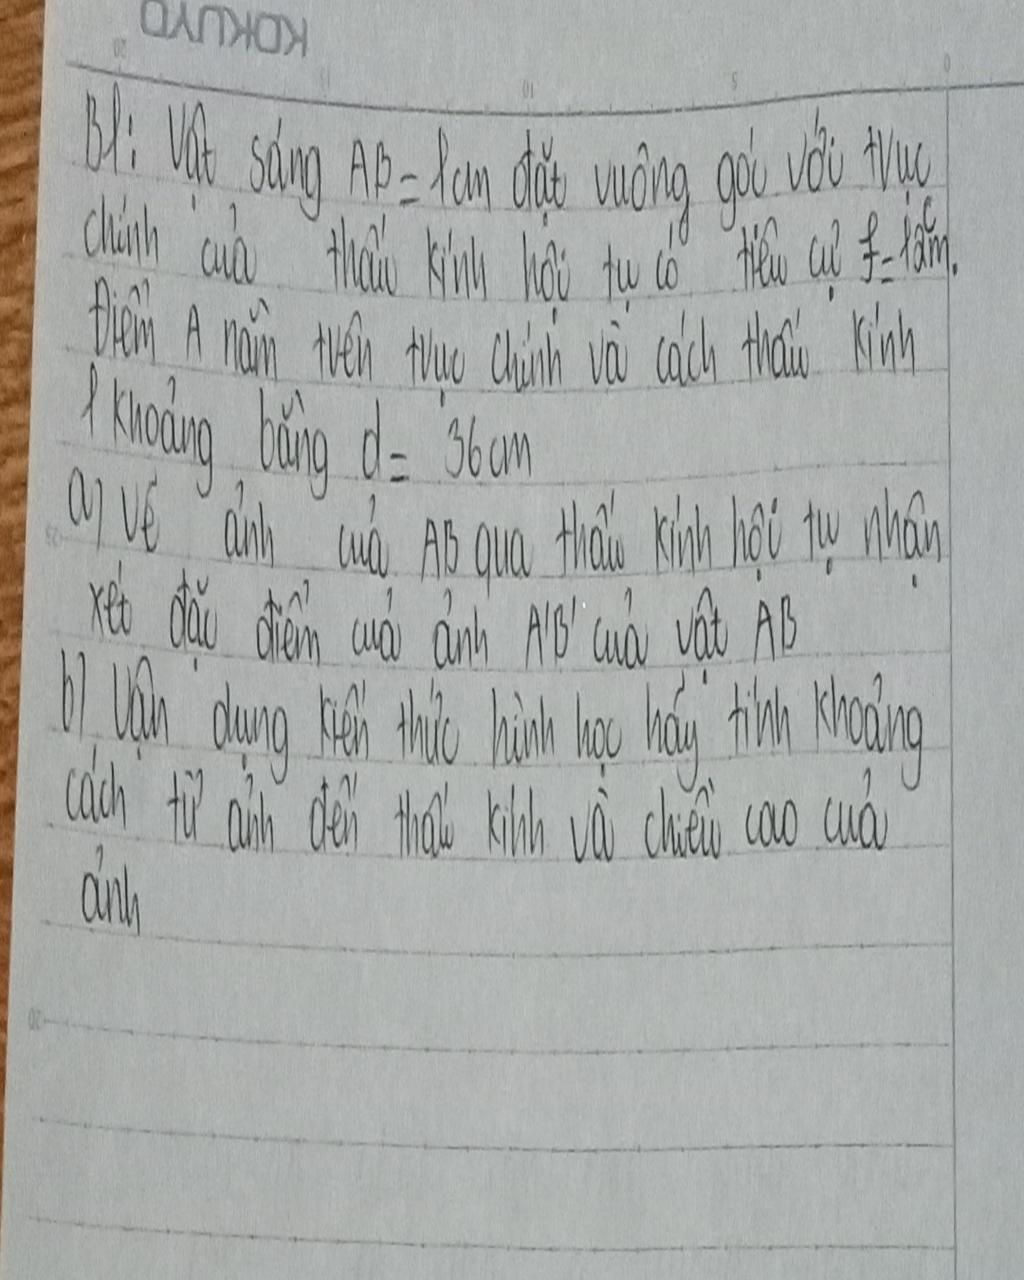 KOKUYO
20 15 10 5 0
B1: Vật sáng AB = 1cm đặt vuông góc với trục
chính của thấu kính hội tụ có tiêu cự
Điểm A nằm trên trục chính và cách thấu kính
1 khoảng bằng d = 36cm
a) vẽ ảnh của AB qua thấu kính hội tụ nhận
xét đặc điểm của ảnh A'B' của vật AB
b) Vận dụng kiến thức hình học hãy tính khoảng
cách từ ảnh đến thấu kính và chiều cao của
ảnh